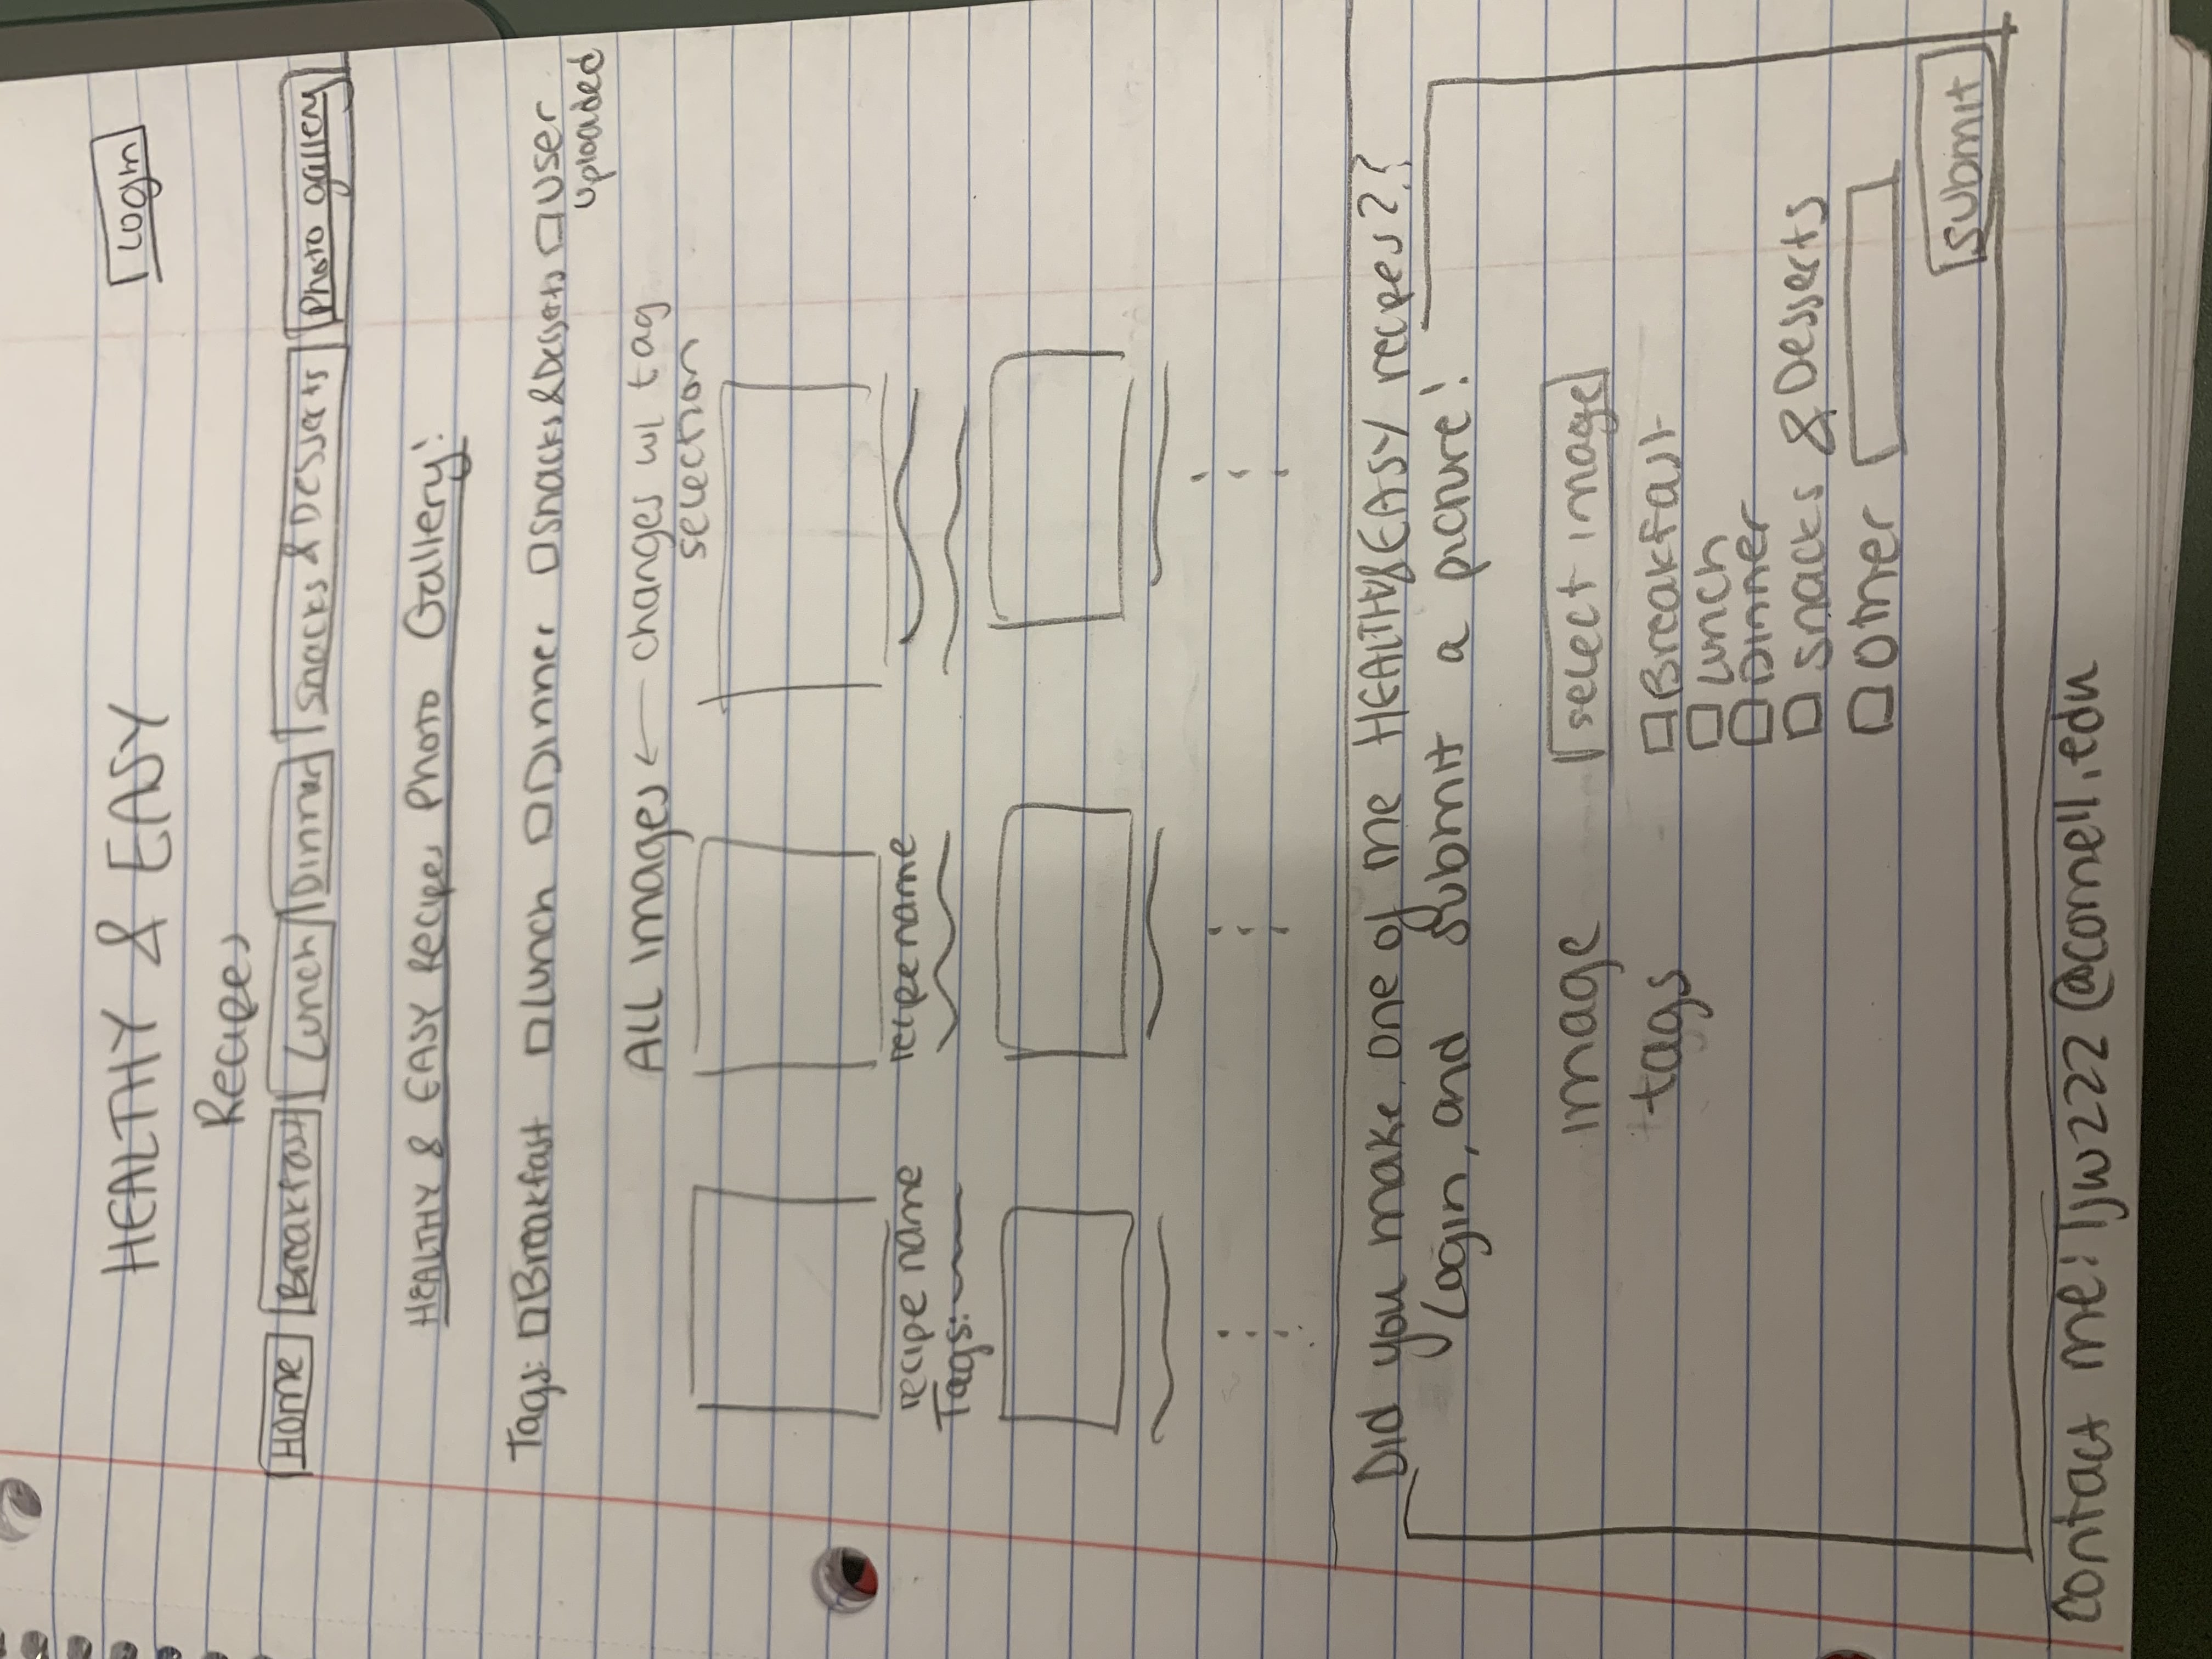 HEALTHY & EASY
Login
Recipes
Home Breakfast Lunch Dinner Snacks & Desserts Photo gallery
HEALTHY & EASY Recipes Photo Gallery!
Tags: Breakfast Lunch Dinner Snacks & Desserts User
uploaded
ALL Images ← changes w/ tag
selection
recipe name recipe name
Tags:
Did you make one of me HEALTHY&EASY recipes??
Login, and submit a picture!
image select image
tags Breakfast
Lunch
Dinner
Snacks & Desserts
Other
Submit
contact me: Tjw222@cornell.edu